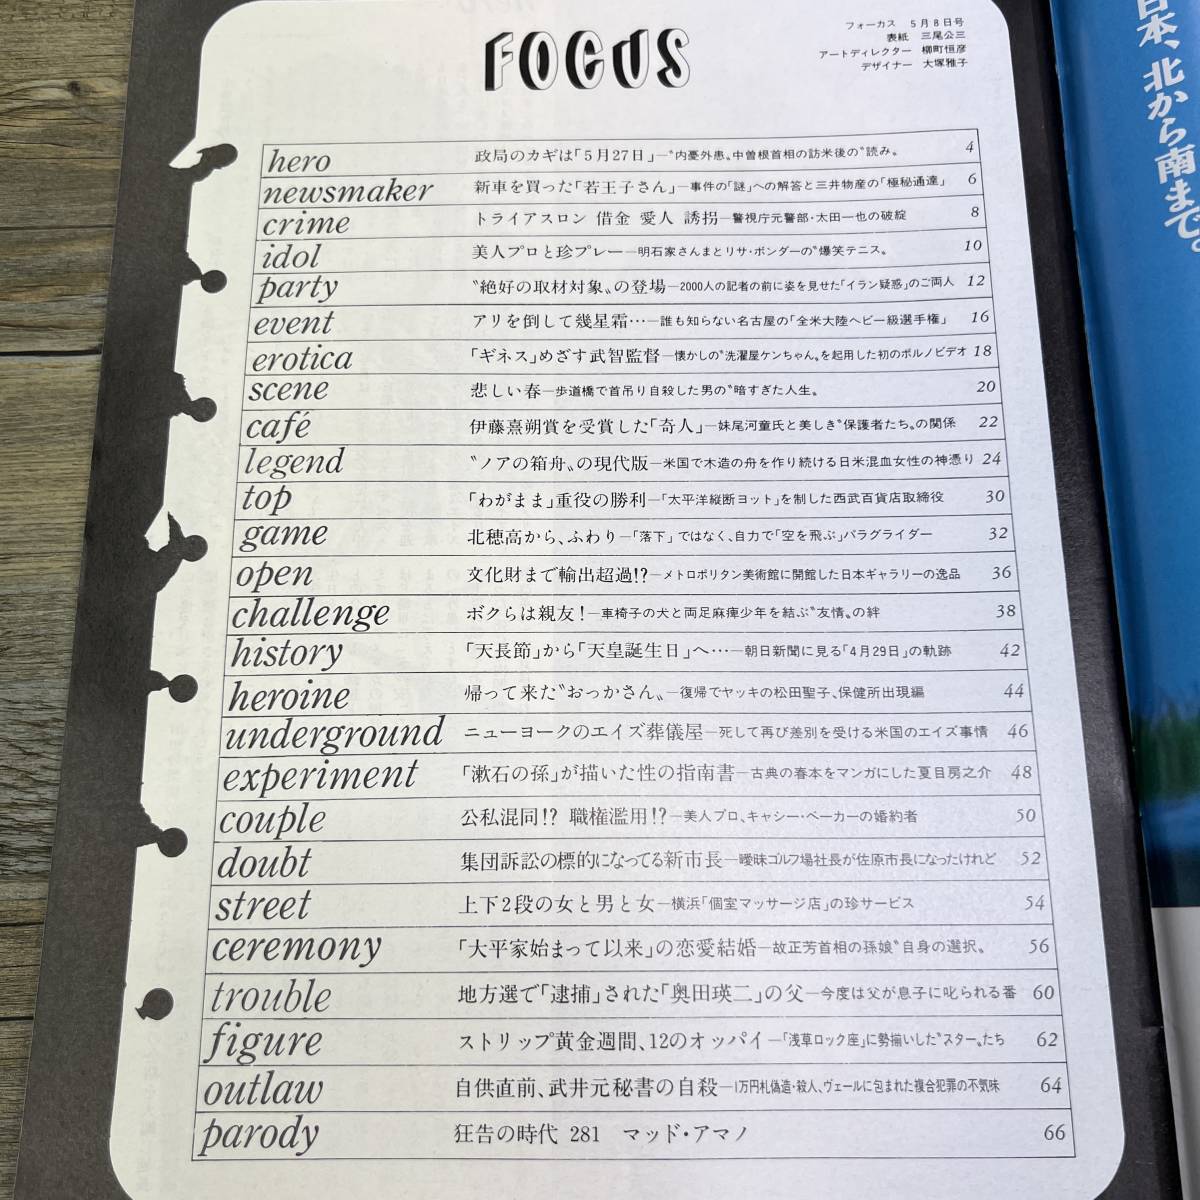 FOCUS
フォーカス 5月8日号
表紙 三尾公三
アートディレクター 柳町恒彦
デザイナー 大塚雅子
hero 政局のカギは「5月27日」—〝内憂外患〟中曽根首相の訪米後の〝読み〟 4
newsmaker 新車を買った「若王子さん」—事件の「謎」への解答と三井物産の「極秘通達」 6
crime トライアスロン 借金 愛人 誘拐—警視庁元警部・太田一也の破綻 8
idol 美人プロと珍プレー—明石家さんまとリサ・ボンダーの〝爆笑テニス〟 10
party 〝絶好の取材対象〟の登場—2000人の記者の前に姿を見せた「イラン疑惑」のご両人 12
event アリを倒して幾星霜…—誰も知らない名古屋の「全米大陸ヘビー級選手権」 16
erotica 「ギネス」めざす武智監督—懐かしの〝洗濯屋ケンちゃん〟を起用した初のポルノビデオ 18
scene 悲しい春—歩道橋で首吊り自殺した男の〝暗すぎた人生〟 20
café 伊藤熹朔賞を受賞した「奇人」—妹尾河童氏と美しき〝保護者たち〟の関係 22
legend 〝ノアの箱舟〟の現代版—米国で木造の舟を作り続ける日米混血女性の神憑り 24
top 「わがまま」重役の勝利—「太平洋縦断ヨット」を制した西武百貨店取締役 30
game 北穂高から、ふわり—「落下」ではなく、自力で「空を飛ぶ」パラグライダー 32
open 文化財まで輸出超過!?—メトロポリタン美術館に開館した日本ギャラリーの逸品 36
challenge ボクらは親友!—車椅子の犬と両足麻痺少年を結ぶ〝友情〟の絆 38
history 「天長節」から「天皇誕生日」へ…—朝日新聞に見る「4月29日」の軌跡 42
heroine 帰って来た〝おっかさん〟—復帰でヤッキの松田聖子、保健所出現編 44
underground ニューヨークのエイズ葬儀屋—死して再び差別を受ける米国のエイズ事情 46
experiment 「漱石の孫」が描いた性の指南書—古典の春本をマンガにした夏目房之介 48
couple 公私混同!? 職権濫用!?—美人プロ、キャシー・ベーカーの婚約者 50
doubt 集団訴訟の標的になってる新市長—曖昧ゴルフ場社長が佐原市長になったけれど 52
street 上下2段の女と男と女—横浜「個室マッサージ店」の珍サービス 54
ceremony 「大平家始まって以来」の恋愛結婚—故正芳首相の孫娘〝自身の選択〟 56
trouble 地方選で「逮捕」された「奥田瑛二」の父—今度は父が息子に叱られる番 60
figure ストリップ黄金週間、12のオッパイ—「浅草ロック座」に勢揃いした〝スター〟たち 62
outlaw 自供直前、武井元秘書の自殺—1万円札偽造・殺人、ヴェールに包まれた複合犯罪の不気味 64
parody 狂告の時代 281 マッド・アマノ 66
日本、北から南まで。